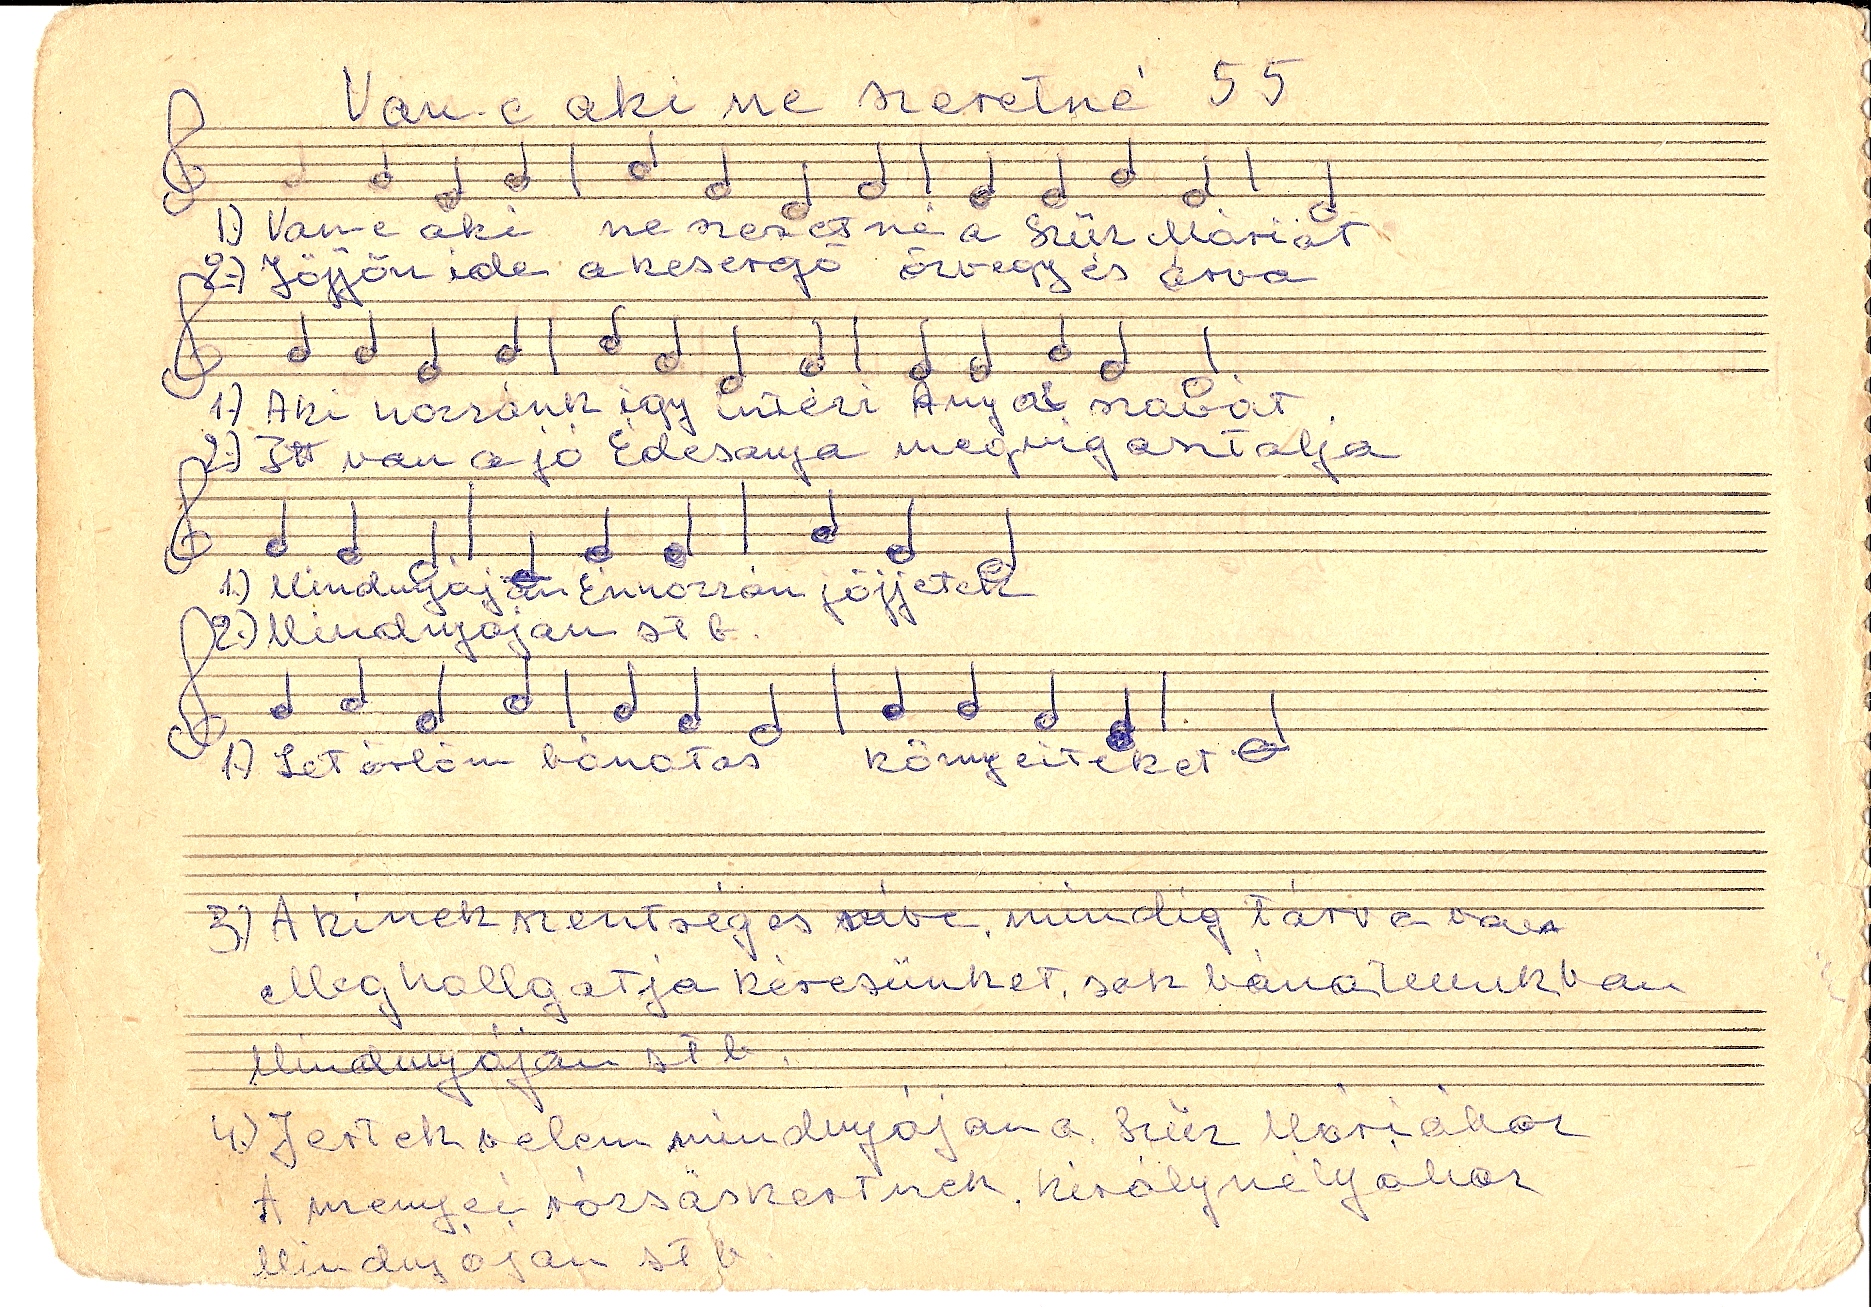 Van-e aki ne szeretné 55
1.) Van-e aki ne szeretné a Szűz Máriát
2.) Jöjjön ide a kesergő özvegy és árva
1.) Aki hozzánk így intézi Anyai szavát.
2.) Itt van a jó Édesanya megvigasztalja
1.) Mindnyáján Énhozzám jőjjetek
2.) Mindnyáján stb.
1.) Letörlöm bánatos könyeiteket
3.) Akinek szentséges szíve, mindig tárva van
Meghallgatja kérésünket, sok bánatunkban
Mindnyáján stb.
4.) Jertek velem mindnyájan a Szűz Máriához
A menyei rózsáskertnek, királynélyához
Mindnyáján stb.